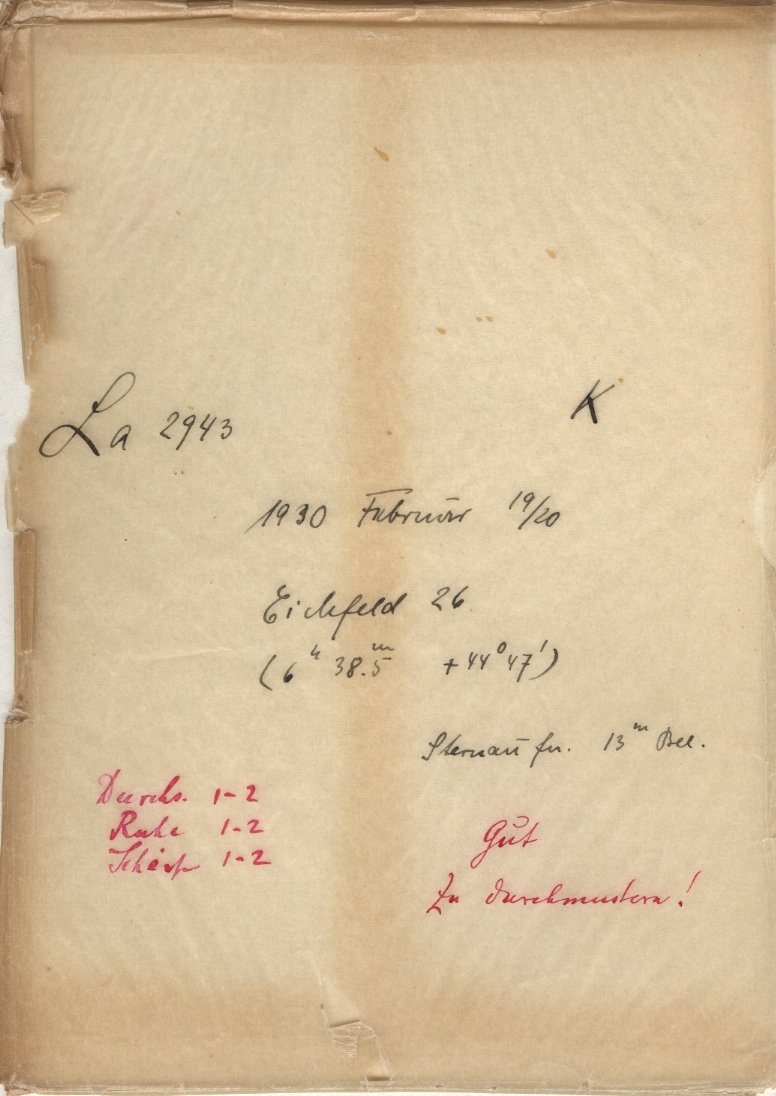 La 2943 K
1930 Februar 19/20
Eichfeld 26
(6ʰ 38.5ᵐ +44°47')
Sternaufn. 13ᵐ Bel.
Durchs. 1-2
Ruhe 1-2
Schärfe 1-2
Gut
Zu durchmustern!